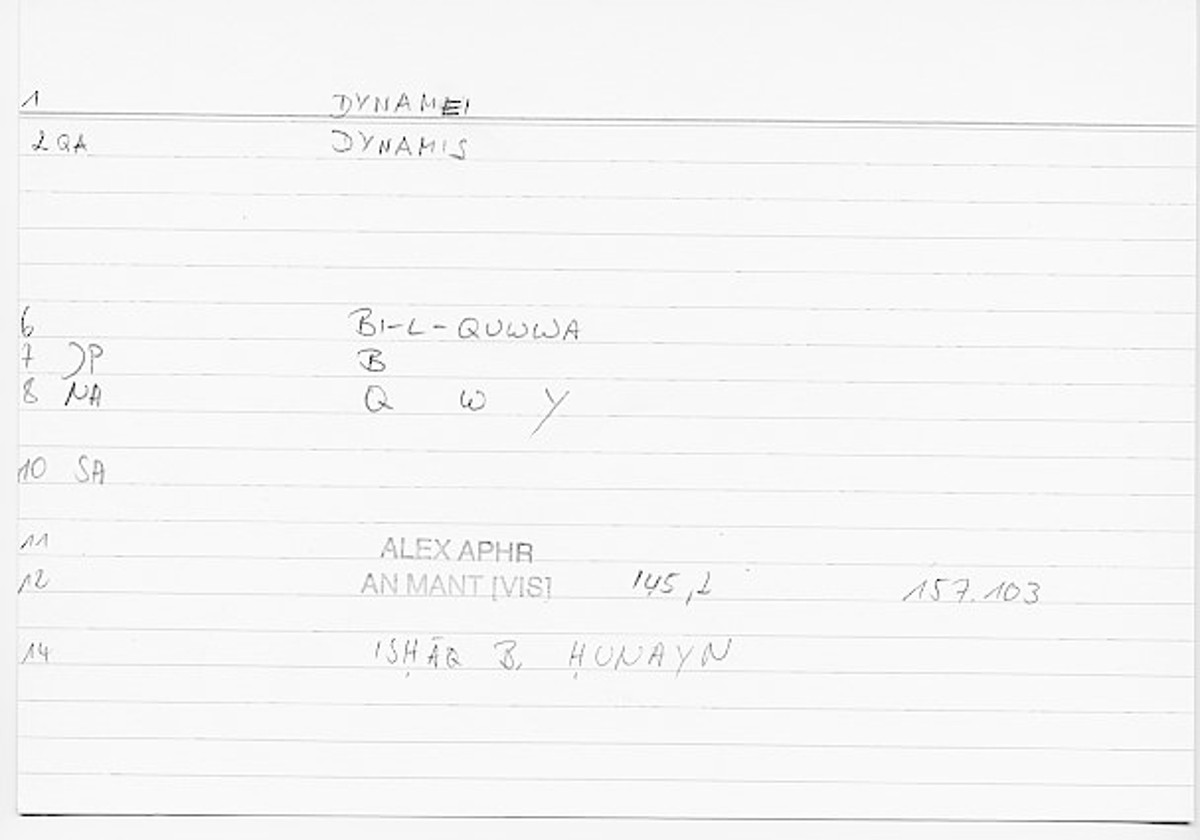 1 DYNAMEI
2 QA DYNAMIS
6 BI-L-QUWWA
7 JP B
8 NA Q W Y
10 SA
11 ALEX APHR
12 AN MANT [VIS] 145,2 157.103
14 ISḤĀQ B. ḤUNAYN